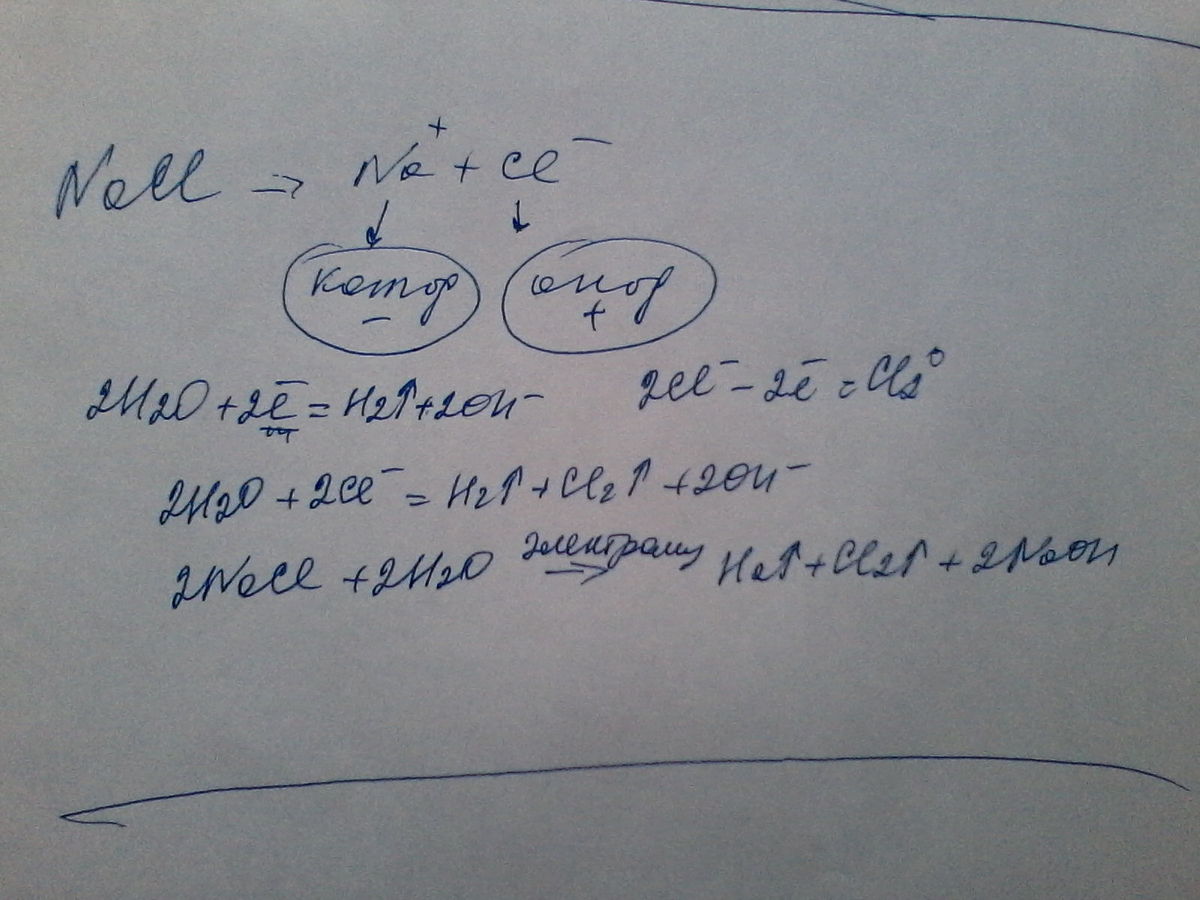 NaCl → Na⁺ + Cl⁻
↓ ↓
катод анод
− +
2H₂O + 2ē = H₂↑ + 2OH⁻ 2Cl⁻ − 2ē = Cl₂⁰
2H₂O + 2Cl⁻ = H₂↑ + Cl₂↑ + 2OH⁻
2NaCl + 2H₂O электролиз → H₂↑ + Cl₂↑ + 2NaOH